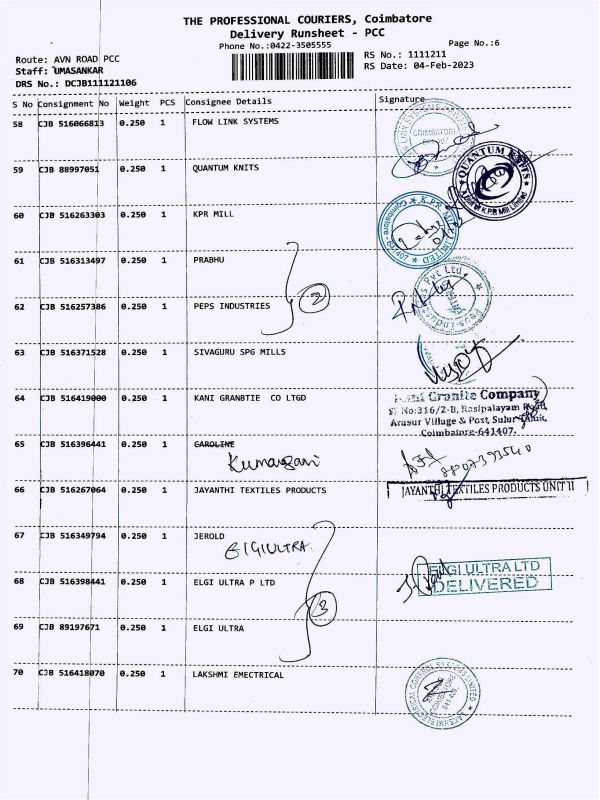 THE PROFESSIONAL COURIERS, Coimbatore
Delivery Runsheet - PCC
Phone No.:0422-3505555
Page No.:6
Route: AVN ROAD PCC
RS No.: 1111211
Staff: UMASANKAR
RS Date: 04-Feb-2023
DRS No.: DCJB111121106
S No Consignment No Weight PCS Consignee Details Signature
58 CJB 516066813 0.250 1 FLOW LINK SYSTEMS
COIMBATORE
59 CJB 88997051 0.250 1 QUANTUM KNITS
QUANTUM KNITS
K.P.R Mill Limited
60 CJB 516263303 0.250 1 KPR MILL
K.P.R. MILL LIMITED
Coimbatore - 641407
61 CJB 516313497 0.250 1 PRABHU
2
62 CJB 516257386 0.250 1 PEPS INDUSTRIES
63 CJB 516371528 0.250 1 SIVAGURU SPG MILLS
64 CJB 516419000 0.250 1 KANI GRANBTIE CO LTGD
Kani Granite Company
SF No:316/2-B, Rasipalayam Road,
Arasur Village & Post, Sulur Taluk,
Coimbatore-641407.
65 CJB 516396441 0.250 1 CAROLINE
Kumarasani
66 CJB 516267064 0.250 1 JAYANTHI TEXTILES PRODUCTS
JAYANTHI TEXTILES PRODUCTS UNIT II
67 CJB 516349794 0.250 1 JEROLD
ELGIULTRA.
68 CJB 516398441 0.250 1 ELGI ULTRA P LTD
ELGI ULTRA LTD
DELIVERED
3
69 CJB 89197671 0.250 1 ELGI ULTRA
70 CJB 516418070 0.250 1 LAKSHMI EMECTRICAL
LAKSHMI ELECTRICAL CONTROL SYSTEMS LIMITED